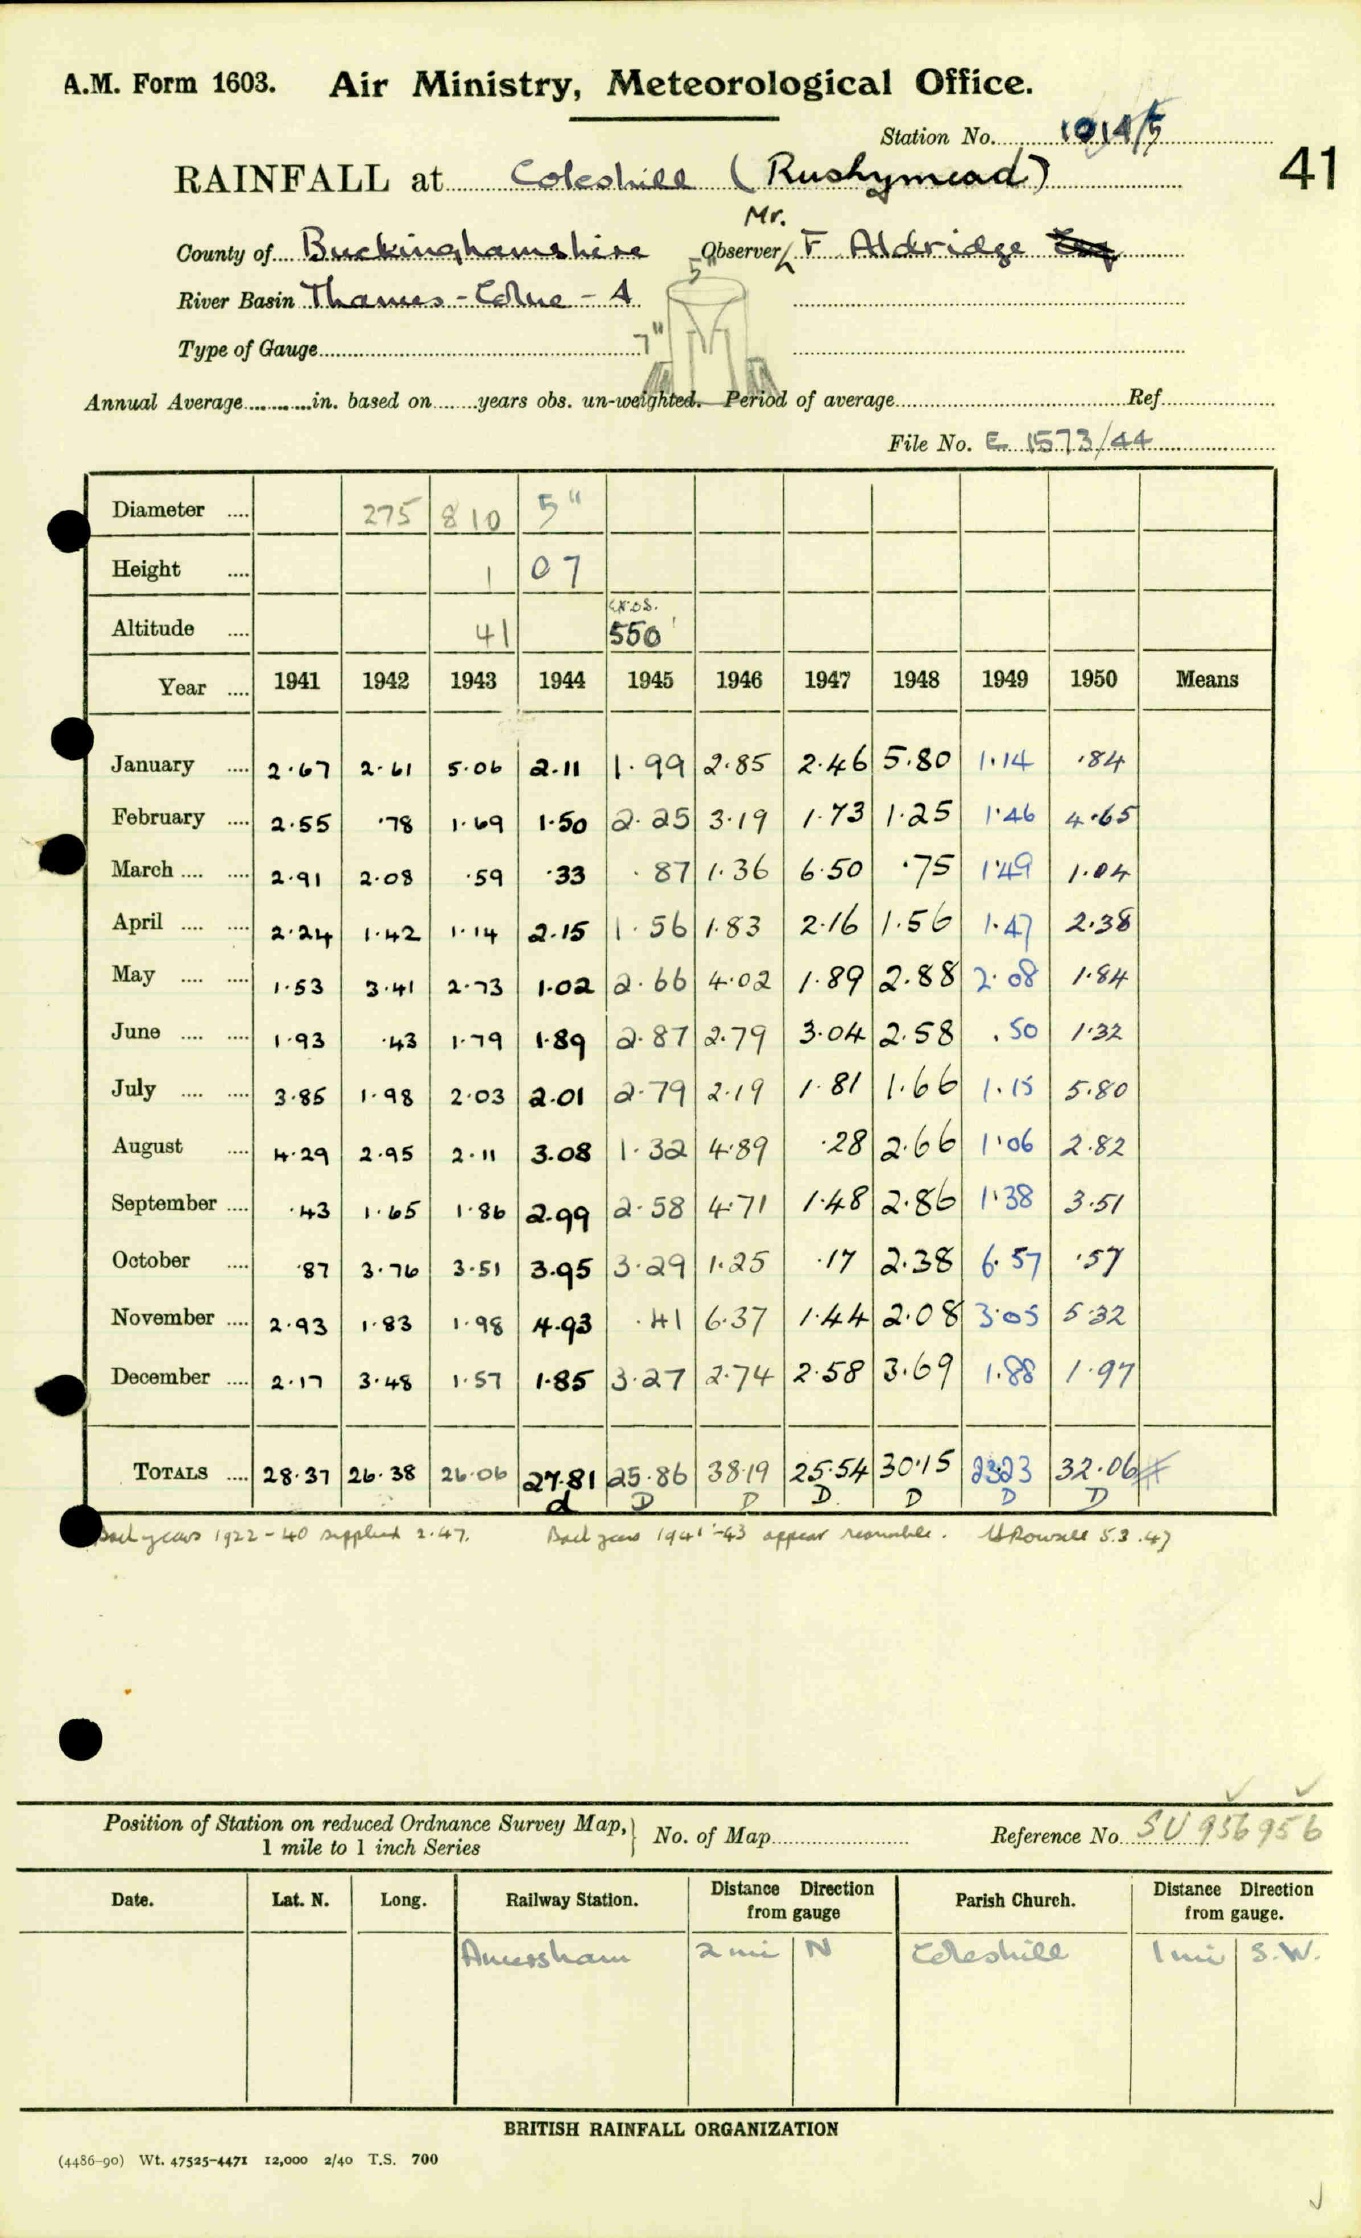 A.M. Form 1603. Air Ministry, Meteorological Office.
Station No. 1014/5
41
RAINFALL at Coleshill (Rushymead)
Mr.
County of Buckinghamshire Observer F Aldridge
5"
River Basin Thames - Colne - A
Type of Gauge 7"
Annual Average in. based on years obs. un-weighted. Period of average Ref
File No. E 1573/44
Diameter 275 810 5"
Height 1 07
Altitude 41 550'
Year 1941 1942 1943 1944 1945 1946 1947 1948 1949 1950 Means
January 2.67 2.61 5.06 2.11 1.99 2.85 2.46 5.80 1.14 .84
February 2.55 .78 1.69 1.50 2.25 3.19 1.73 1.25 1.46 4.65
March 2.91 2.08 .59 .33 .87 1.36 6.50 .75 1.49 1.04
April 2.24 1.42 1.14 2.15 1.56 1.83 2.16 1.56 1.47 2.38
May 1.53 3.41 2.73 1.02 2.66 4.02 1.89 2.88 2.08 1.84
June 1.93 .43 1.79 1.89 2.87 2.79 3.04 2.58 .50 1.32
July 3.85 1.98 2.03 2.01 2.79 2.19 1.81 1.66 1.15 5.80
August 4.29 2.95 2.11 3.08 1.32 4.89 .28 2.66 1.06 2.82
September .43 1.65 1.86 2.99 2.58 4.71 1.48 2.86 1.38 3.51
October .87 3.76 3.51 3.95 3.29 1.25 .17 2.38 6.57 .57
November 2.93 1.83 1.98 4.93 .41 6.37 1.44 2.08 3.05 5.32
December 2.17 3.48 1.57 1.85 3.27 2.74 2.58 3.69 1.88 1.97
TOTALS 28.37 26.38 26.06 27.81 25.86 38.19 25.54 30.15 23.23 32.06
d D D D D D D
Back years 1922-40 supplied 2.47. Back years 1941-43 appear reasonable. Rowsell 5.3.47
Position of Station on reduced Ordnance Survey Map, 1 mile to 1 inch Series No. of Map Reference No. SU 956956
Date. Lat. N. Long. Railway Station. Distance Direction from gauge Parish Church. Distance Direction from gauge.
Amersham 2 mi N Coleshill 1 mi S.W.
BRITISH RAINFALL ORGANIZATION
(4486-90) Wt. 47525-4471 12,000 2/40 T.S. 700